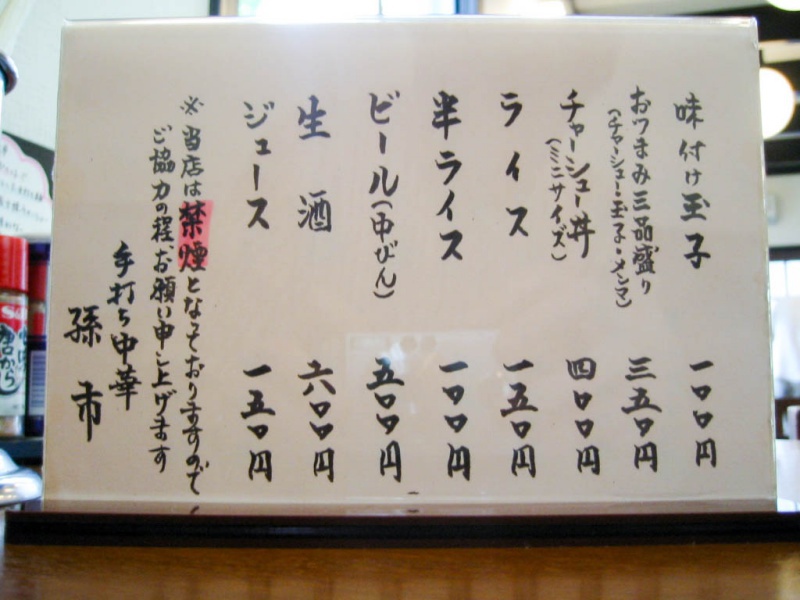 味付け玉子 一〇〇円
おつまみ三品盛り 三五〇円
(チャーシュー・玉子・メンマ)
チャーシュー丼 四〇〇円
(ミニサイズ)
ライス 一五〇円
半ライス 一〇〇円
ビール(中びん) 五〇〇円
生酒 六〇〇円
ジュース 一五〇円
※当店は禁煙となっておりますので
ご協力の程、お願い申し上げます
手打ち中華
孫市
S&B